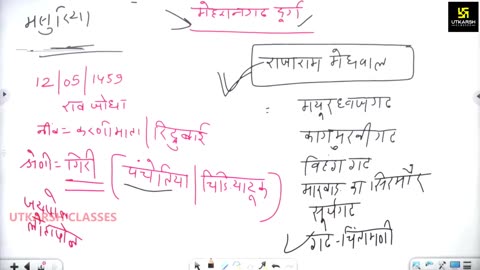 मेहरानगढ़ दुर्ग
मसुरिया
UTKARSH
राजाराम मेघवाल
12/05/1459
राव जोधा
मयूरध्वजगढ
नीव = करणीमाता | रिद्धुबाई
कागमुखीगढ
श्रेणी = गिरी (पंचेटिया | चिड़ियाटूक)
विहंगगढ
मारवाड का सिरमौर
सूर्यगढ
गढ - चिंतामणी
जयपोल
लोहापोल
UTKARSH CLASSES